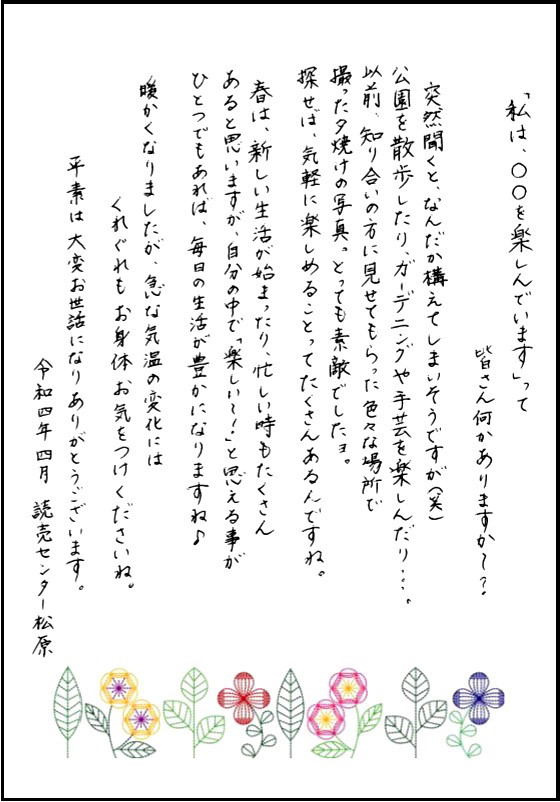 「私は、〇〇を楽しんでいます」って
皆さん何かありますか～？
突然聞くと、なんだか構えてしまいそうですが（笑）
公園を散歩したり、ガーデニングや手芸を楽しんだり…。
以前、知り合いの方に見せてもらった色々な場所で
撮った夕焼けの写真。とっても素敵でしたョ。
探せば、気軽に楽しめることってたくさんあるんですね。
春は、新しい生活が始まったり、忙しい時もたくさん
あると思いますが、自分の中で「楽しい～！」と思える事が
ひとつでもあれば、毎日の生活が豊かになりますね♪
暖かくなりましたが、急な気温の変化には
くれぐれもお身体お気をつけくださいね。
平素は大変お世話になりありがとうございます。
令和四年四月　読売センター松原